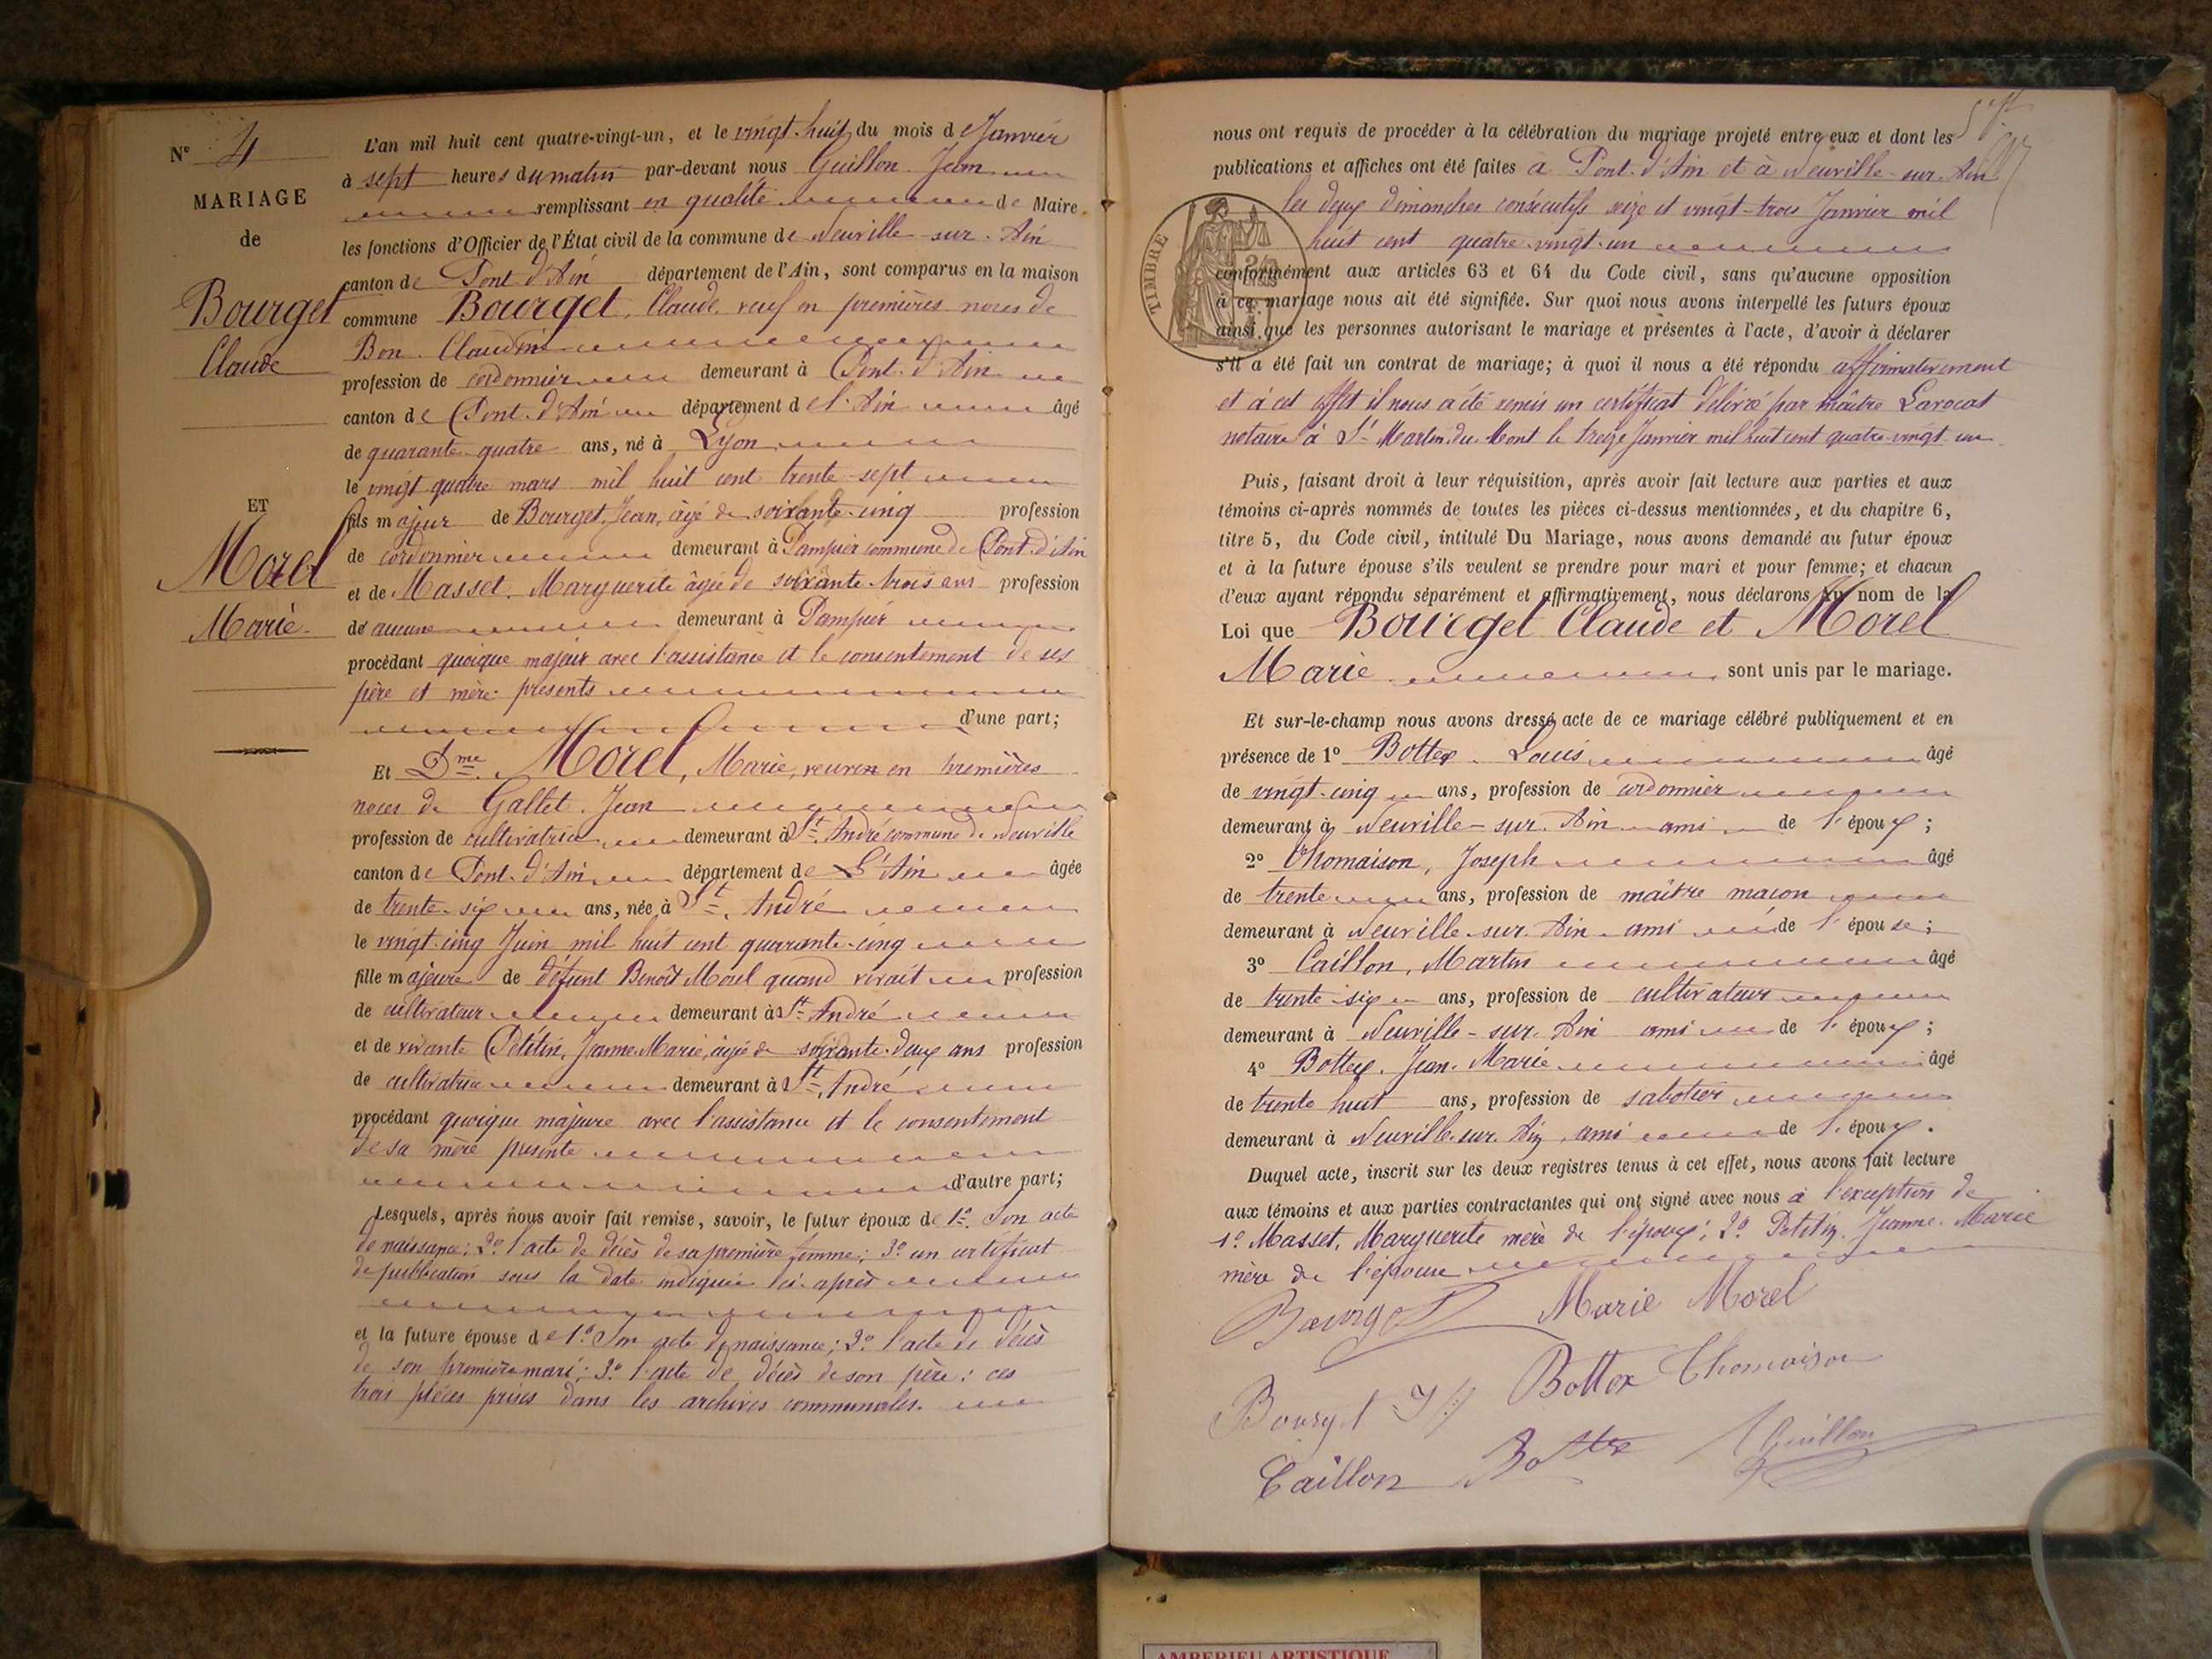 N° 4
MARIAGE
de
Bourget
Claude
ET
Morel
Marie.
L'an mil huit cent quatre-vingt-un, et le vingt-huit du mois de Janvier
à sept heures du matin par-devant nous Guillon Jean
remplissant en qualité de Maire
les fonctions d'Officier de l'État civil de la commune de Neuville-sur-Ain
canton de Pont-d'Ain département de l'Ain, sont comparus en la maison
commune Bourget, Claude, veuf en premières noces de
Bon Claudine
profession de cordonnier demeurant à Pont-d'Ain
canton de Pont-d'Ain département de l'Ain âgé
de quarante-quatre ans, né à Lyon
le vingt quatre mars mil huit cent trente-sept
fils majeur de Bourget, Jean, âgé de soixante-cinq profession
de cordonnier demeurant à Dampier commune de Pont-d'Ain
et de Masset, Marguerite âgée de soixante-trois ans profession
de aucune demeurant à Dampier
procédant quoique majeur avec l'assistance et le consentement de ses
père et mère présents
d'une part;
Et Dme Morel, Marie, veuve en premières
noces de Gallet Jean
profession de cultivatrice demeurant à St André commune de Neuville
canton de Pont-d'Ain département de L'Ain âgée
de trente-six ans, née à St André
le vingt-cinq Juin mil huit cent quarante-cinq
fille majeure de défunt Benoît Morel quand vivait profession
de cultivateur demeurant à St André
et de vivante Pététin, Jeanne Marie, âgée de soixante-deux ans profession
de cultivatrice demeurant à St André
procédant quoique majeure avec l'assistance et le consentement
de sa mère présente
d'autre part;
Lesquels, après nous avoir fait remise, savoir, le futur époux de 1° Son acte
de naissance; 2° l'acte de décès de sa première femme; 3° un certificat
de publication sous la date indiquée ci-après
et la future épouse de 1° Son acte de naissance; 2° l'acte de décès
de son premier mari; 3° l'acte de décès de son père: ces
trois pièces prises dans les archives communales.
nous ont requis de procéder à la célébration du mariage projeté entre eux et dont les
publications et affiches ont été faites à Pont-d'Ain et à Neuville-sur-Ain
les deux dimanches consécutifs seize et vingt-trois Janvier mil
huit cent quatre-vingt-un
TIMBRE
conformément aux articles 63 et 64 du Code civil, sans qu'aucune opposition
à ce mariage nous ait été signifiée. Sur quoi nous avons interpellé les futurs époux
ainsi que les personnes autorisant le mariage et présentes à l'acte, d'avoir à déclarer
s'il a été fait un contrat de mariage; à quoi il nous a été répondu affirmativement
et à cet effet il nous a été remis un certificat délivré par maître Savocat
notaire à St Martin-du-Mont le treize Janvier mil huit cent quatre-vingt-un
Puis, faisant droit à leur réquisition, après avoir fait lecture aux parties et aux
témoins ci-après nommés de toutes les pièces ci-dessus mentionnées, et du chapitre 6,
titre 5, du Code civil, intitulé Du Mariage, nous avons demandé au futur époux
et à la future épouse s'ils veulent se prendre pour mari et pour femme; et chacun
d'eux ayant répondu séparément et affirmativement, nous déclarons au nom de la
Loi que Bourget Claude et Morel
Marie sont unis par le mariage.
Et sur-le-champ nous avons dressé acte de ce mariage célébré publiquement et en
présence de 1° Bottex Louis âgé
de vingt-cinq ans, profession de cordonnier
demeurant à Neuville-sur-Ain ami de l'époux;
2° Thomaison, Joseph âgé
de trente ans, profession de maître maçon
demeurant à Neuville-sur-Ain ami de l'épouse;
3° Caillon, Martin âgé
de trente-six ans, profession de cultivateur
demeurant à Neuville-sur-Ain ami de l'époux;
4° Bottex, Jean-Marie âgé
de trente huit ans, profession de sabotier
demeurant à Neuville-sur-Ain ami de l'époux.
Duquel acte, inscrit sur les deux registres tenus à cet effet, nous avons fait lecture
aux témoins et aux parties contractantes qui ont signé avec nous à l'exception de
1° Masset, Marguerite mère de l'époux; 2° Pétitin, Jeanne-Marie
mère de l'épouse
Bourget Marie Morel
Bourget Bottex Thomaison
Caillon Bottex Guillon
AMBERIEU ARTISTIQUE